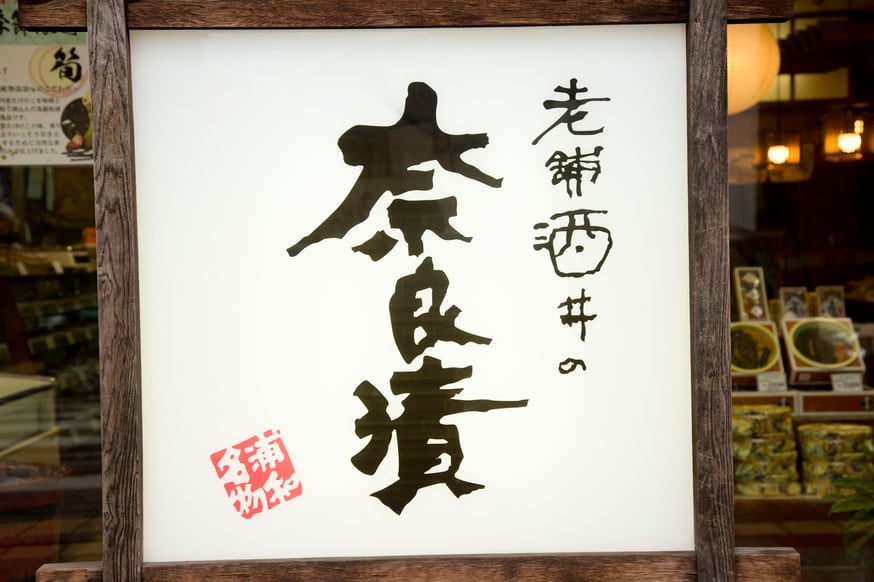 老舗酒井の
奈良漬
浦和
名物
筍